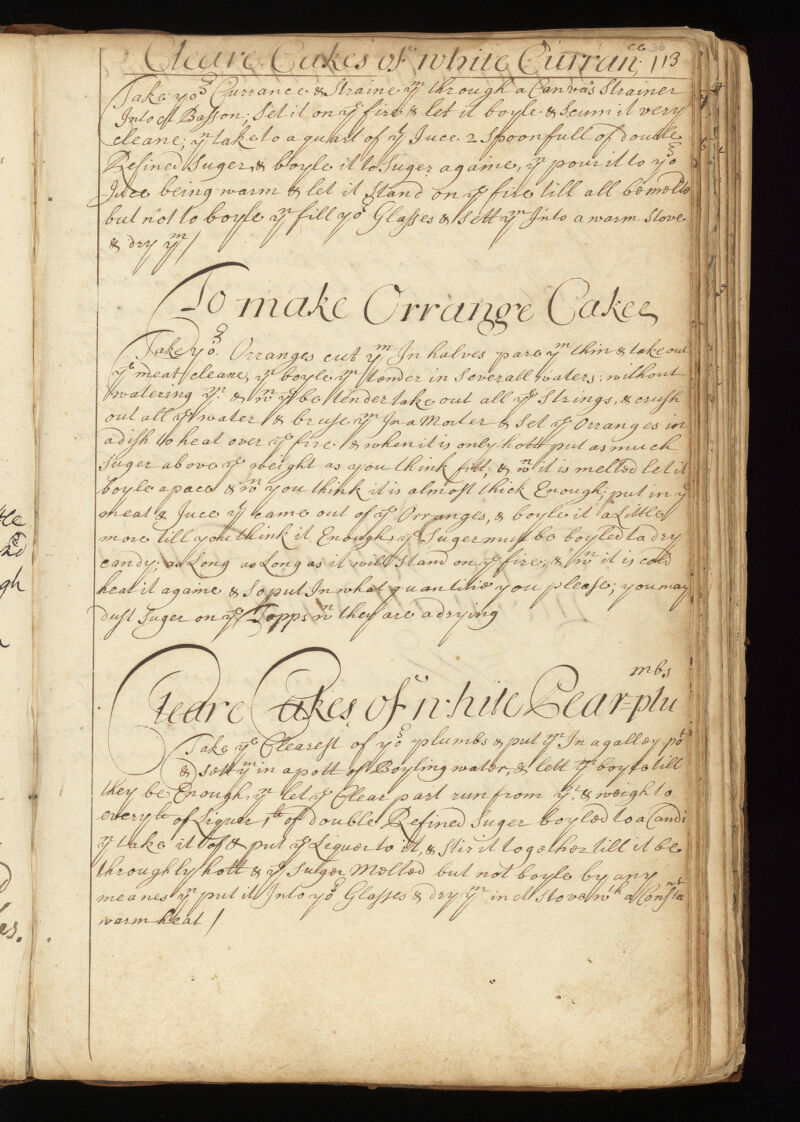 Cleare Cakes of white Curran ce 36 113
Take yor Currance & Straine ym through a Canvas Strainer
Into a Basson; Set it on ye fire & let it boyle & Scum it very
cleane; yn take to a quart of ye Juce 2 Spoonfull of double
Refined Suger, & boyle it to Suger againe, yn pour it to yor
Juce being warm & let it Stand on ye fire till all be melted
but not to boyle yn fill yor Glasses & Sett ym Into a warm Stove
& dry ym /
To make Orrange Cakes
Take yor Orranges cut ym In halves pare ym thin & take out
ye meat cleane, yn boyle ym tender in Severall waters; without
watering ym: & wn ye be tender take out all ye Strings, & crush
out all ye water & bruse ym In a Morter & Set ye Orranges in
a dish to heat over ye fire & when it is only hott put as much
Suger above ye weight as you think fitt; & wn it is melted let it
boyle a pace & wn you think it is almost thick Enough; put in ye
meat & Juce yt came out of ye Orranges, & boyle it a Little
more till you think it Enough, ye Suger must be boyled to a dry
candy; as Long as Long as it will Stand on ye fire; & wn it is cold
heat it againe & So put In what quantitie you please; you may
dust Suger on ye Topps wn they are a drying
Cleare Cakes of white Pear=plu
mbs
Take ye Clearest of yor plumbs & put ym In a galley pot
& Sett ym in a pott of Boyling water, & lett ym boyle till
they be Enough, yn let ye Clear part run from ym & weigh to
every lb of Liquer 1lb of double Refined Suger boyled to a Candi
yn take it off & put ye Liquer to it, & Stir it together till it be
throughly hott & ye Suger Melted but not boyle by any
meanes yn put it Into yor Glasses & dry ym in a Stove wth a Consta nt
warm heat /